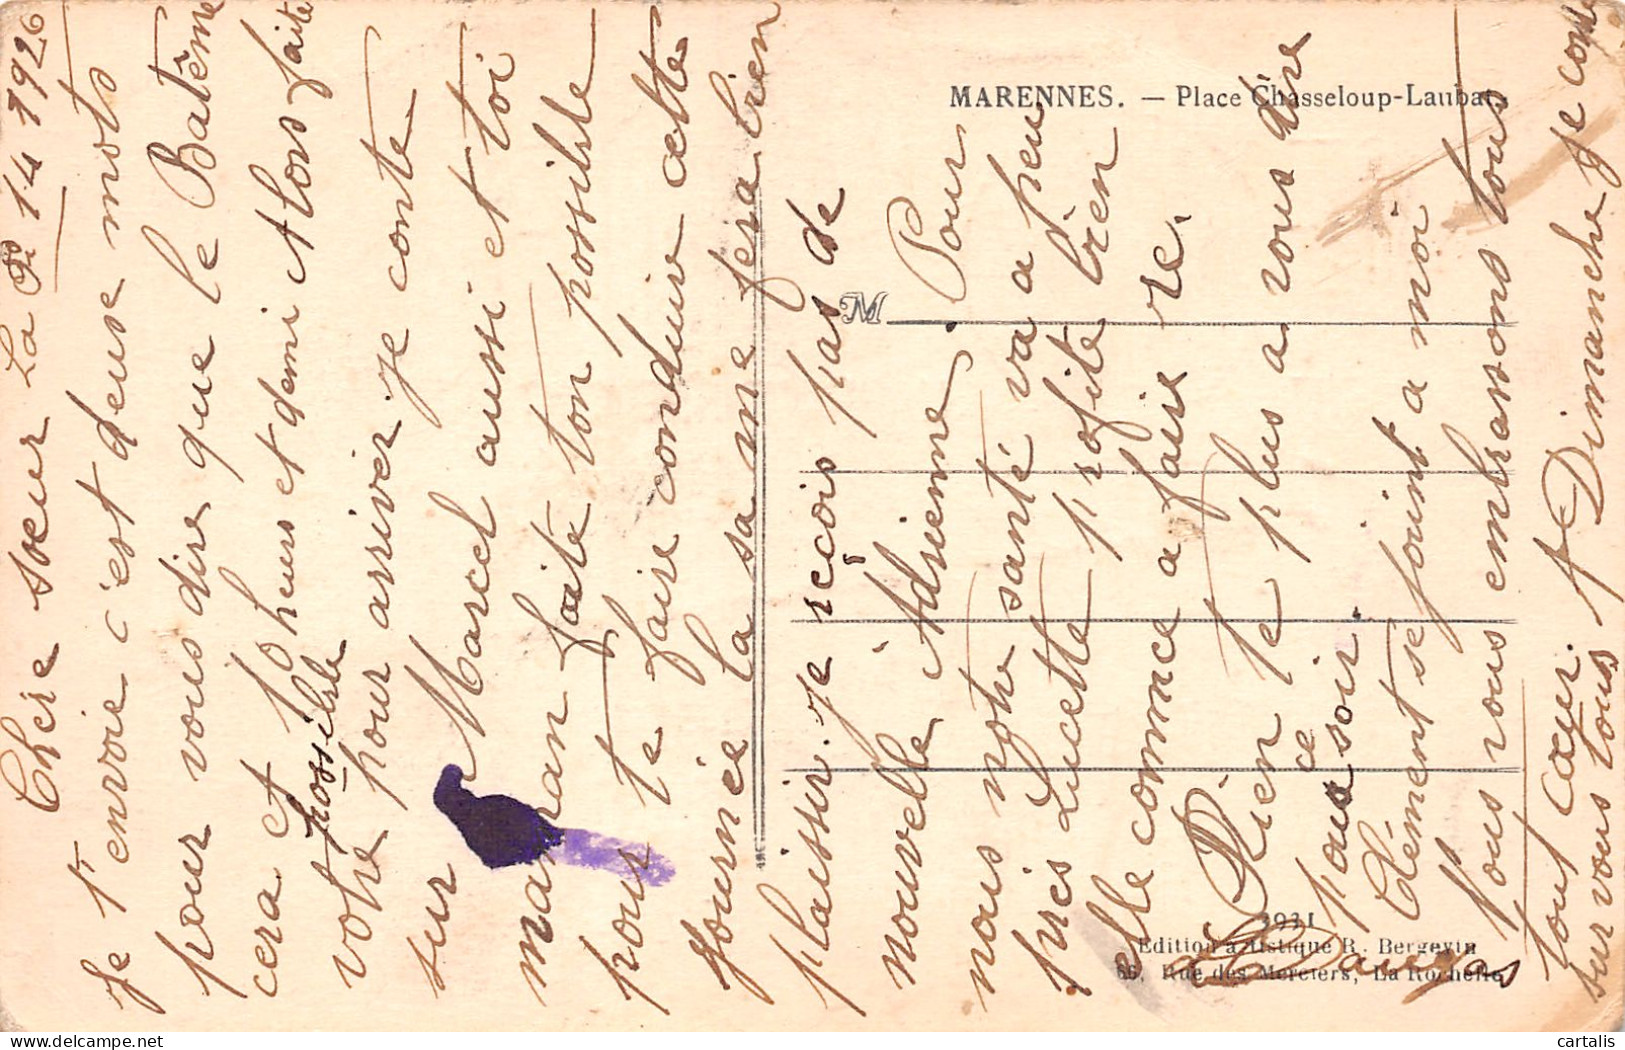 La 14 1926
Chère sœur
Je t'envoie c'est deuse mots
pour vous dire que le Batême
cera et 10 heurs et demi Alors faite
possible
votre pour arriver. Je conte
sur Marcel aussi et toi
maman faite ton possible
pour te faire conduire cette
journée la sa me fera bien
plaissir. Je reçois pas de
nouvelle Adrienne. Pour
nous notre santé va a peu
près Lucette profite bien
elle commence a faire re.
Rien te plus a vous dire
pour ce soir.
Clément se joint a moi
Nous vous embrassons tous
tout cœur. A Dimanche je conte
sur vous tous
MARENNES. — Place Chasseloup-Laubat.
M
3931
Edition artistique R. Bergevin
66, Rue des Merciers, La Rochelle
cartalis
delcampe.net